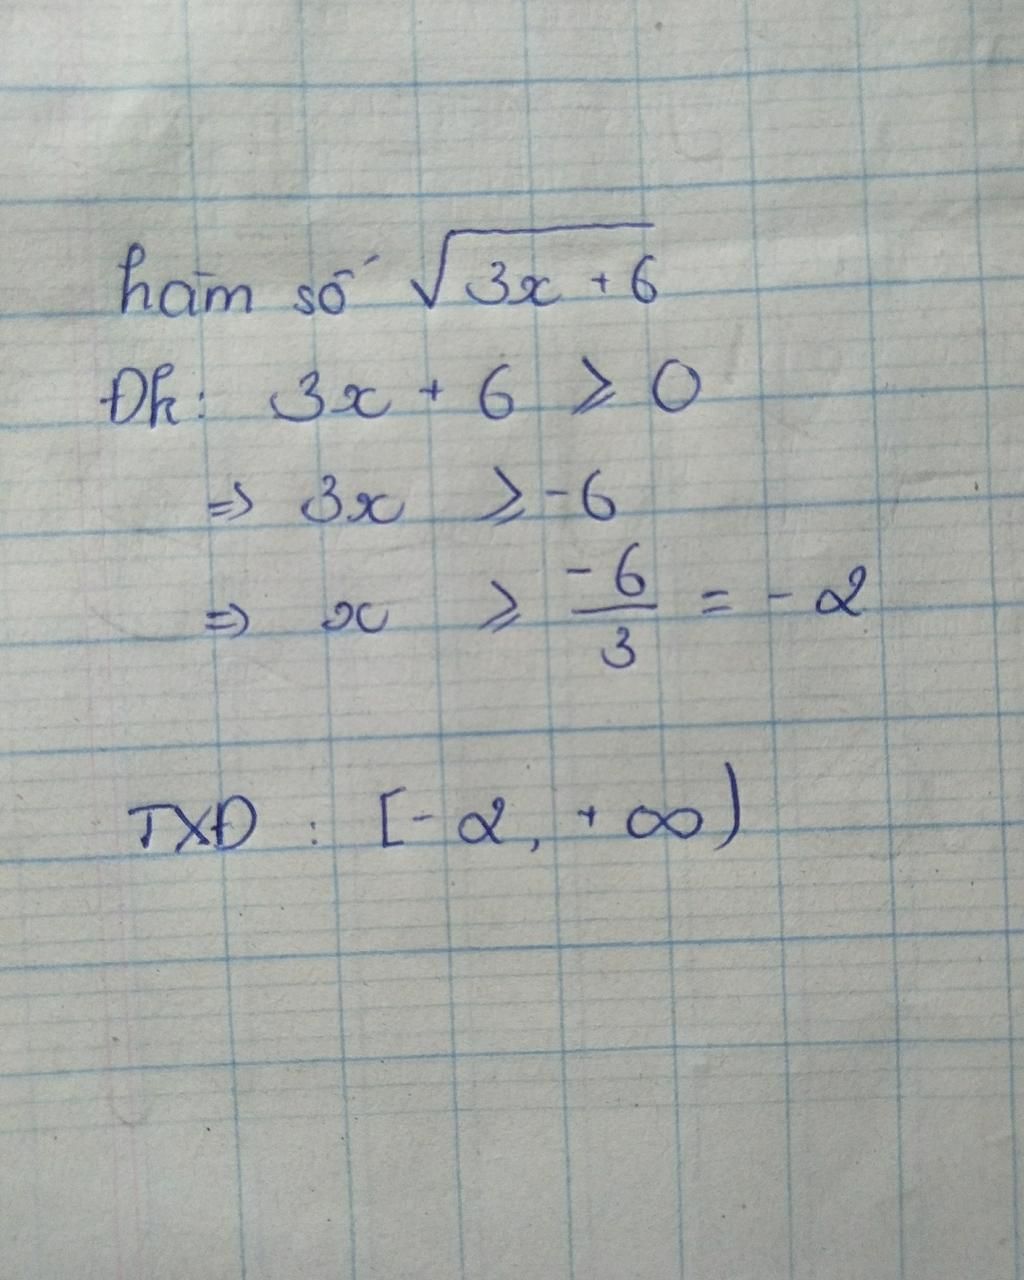 hàm số √(3x + 6)
Đk: 3x + 6 ⩾ 0
⇒ 3x ⩾ -6
⇒ x ⩾ -6/3 = -2
TXĐ : [-2, +∞)